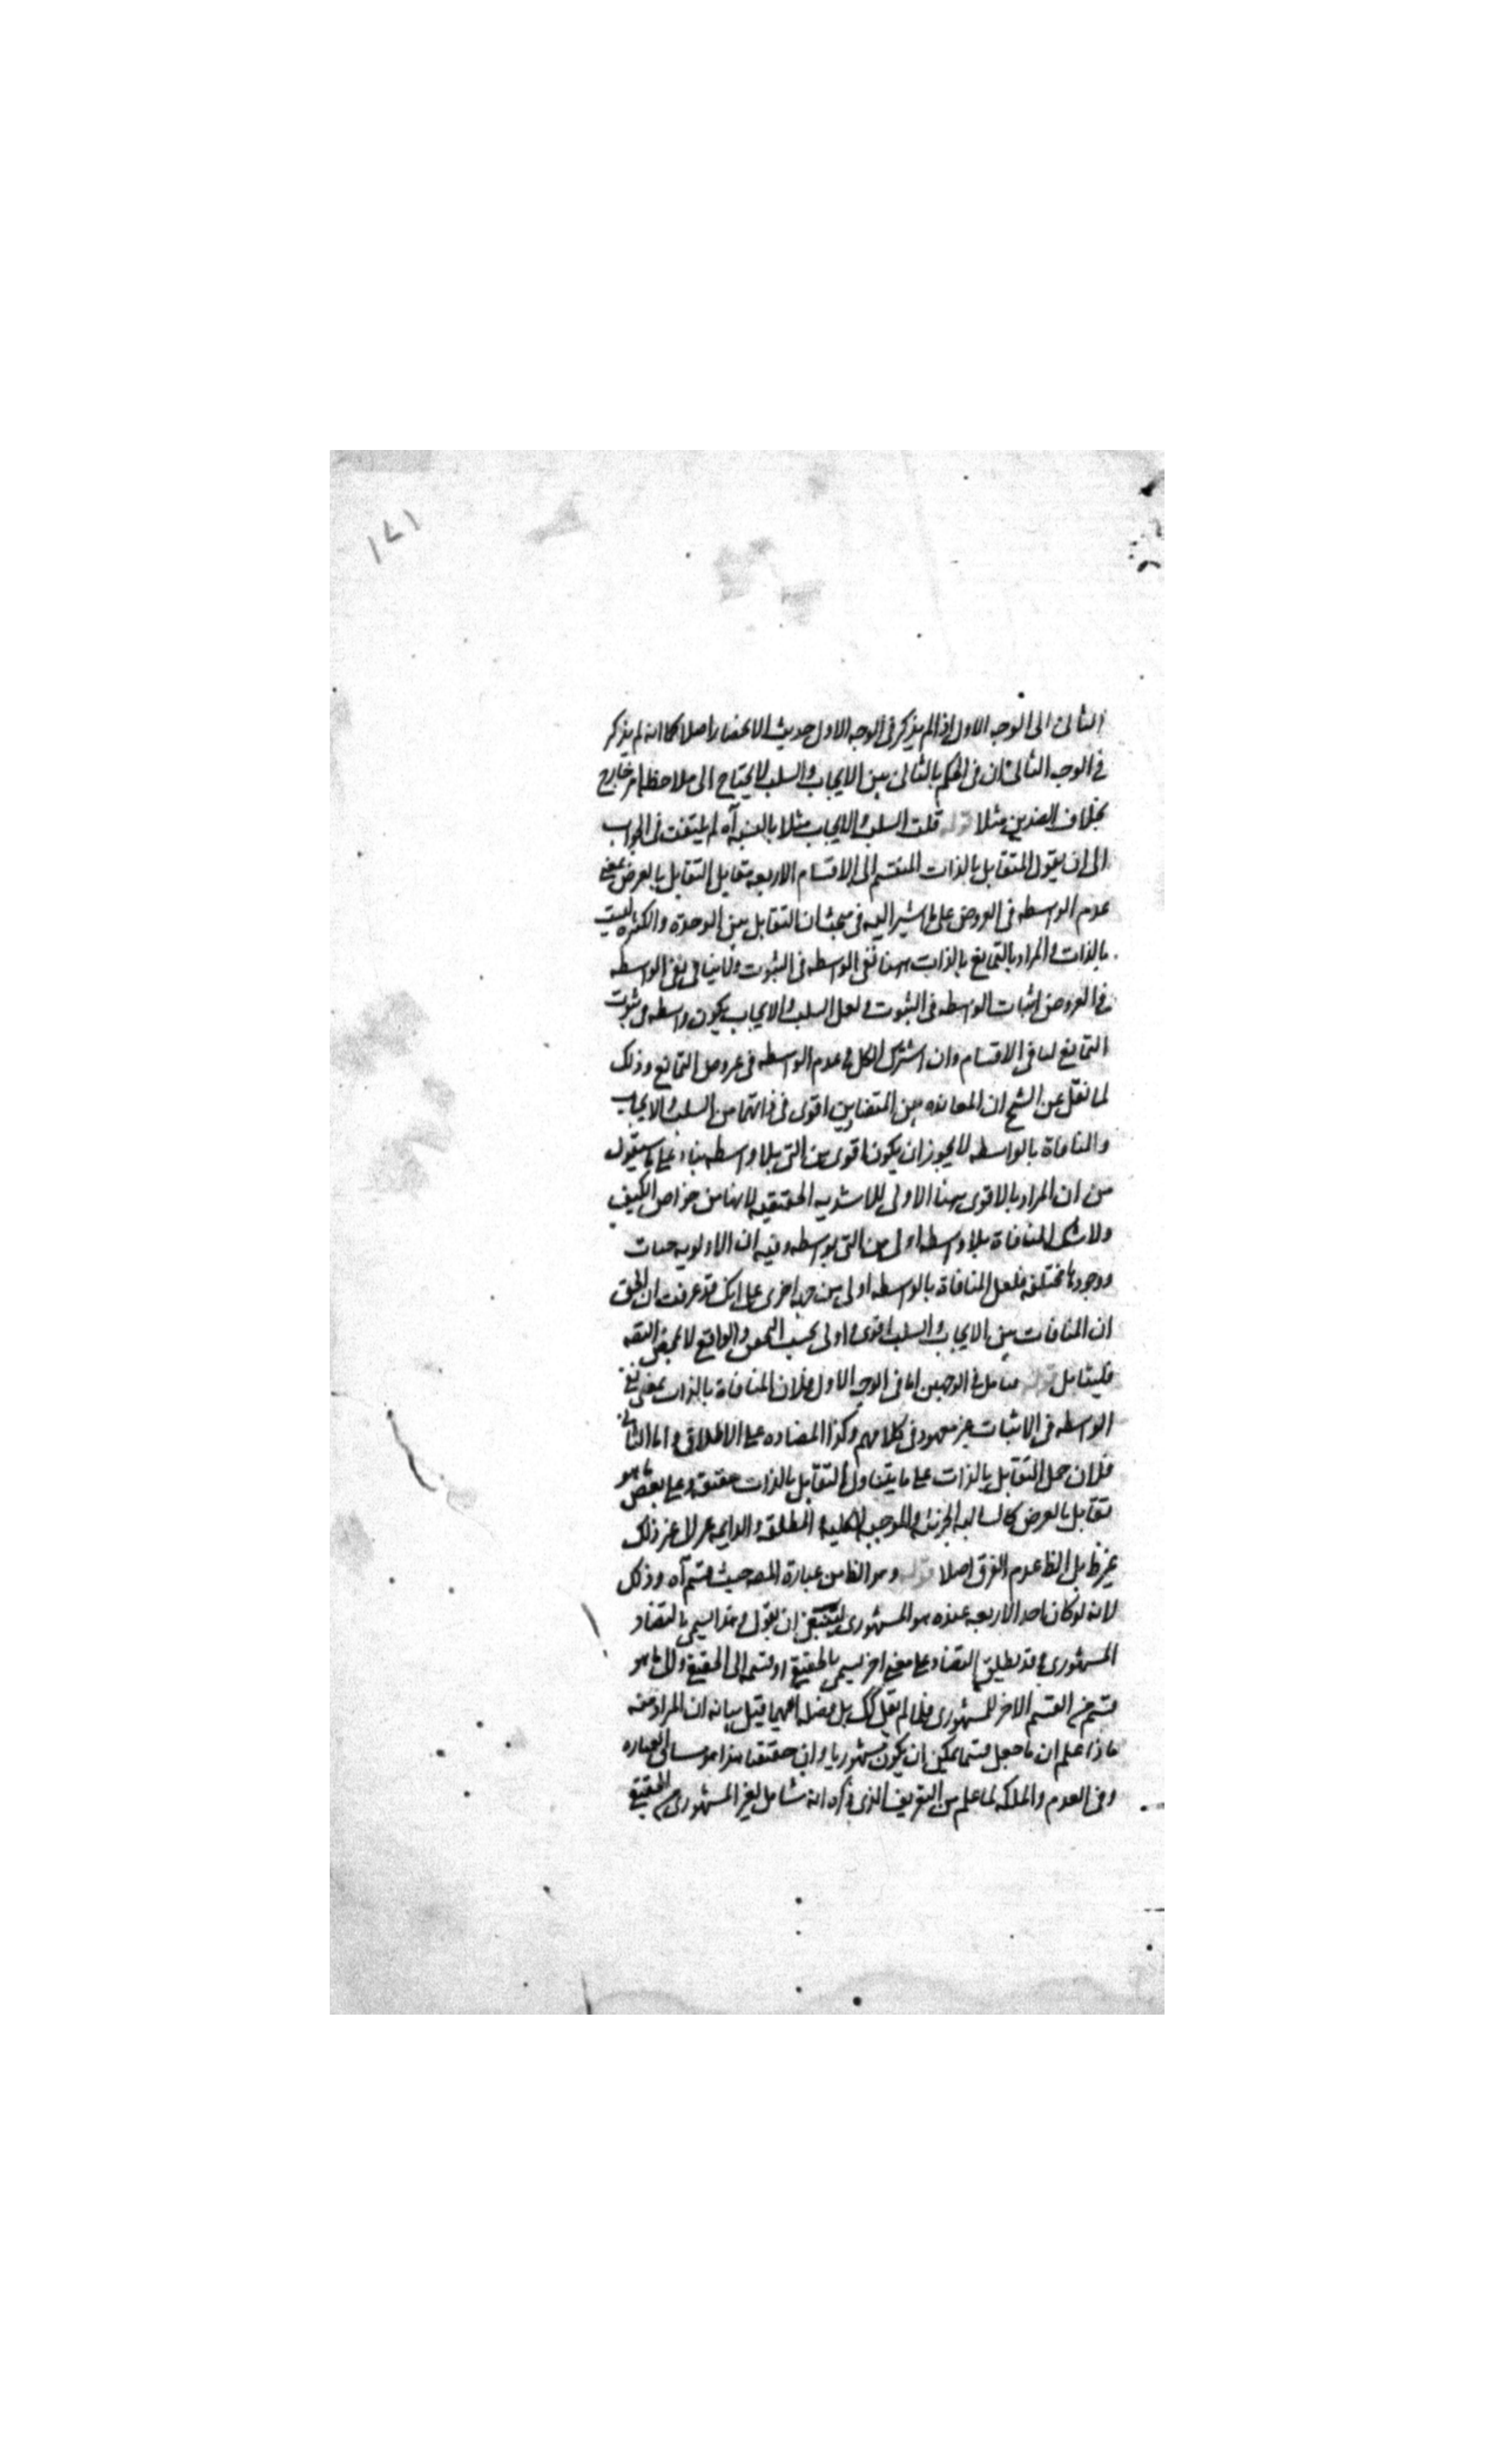 ١٧١
الثانى الى الوجه الاول اذ الم يذكر فى الوجه الاول حديث الانحصار اصلا كما انه لم يذكر
فى الوجه الثانى ان فى الحكم بالثانى بين الايجاب والسلب لا يحتاج الى ملاحظة امر خارج
بخلاف الضدين مثلا قوله قلت السلب والايجاب مثلا بالنسبه آه لم يلتفت فى الجواب
الى ان يقول المتقابل بالذات المنقسم الى الاقسام الاربعه مقابل التقابل بالعرض بمعنى
عدم الواسطه فى العروض على ما شير اليه فى مبحث ان التقابل بين الوحدة والكثره ليست
بالذات والمراد بالتمانع بالذات ههنا نفى الواسطه فى الثبوت ولا ينافى نفى الواسطه
فى العروض اثبات الواسطه فى الثبوت ولعل السلب والايجاب يكون واسطه فى ثبوت
التمانع لباقى الاقسام وان اشترك الكل فى عدم الواسطه فى عروض التمانع وذلك
لما نقل عن الشيخ ان المعانده بين المتضادين اقوى فى ذاتهما من السلب والايجاب
والمنافاة بالواسطه لا يجوز ان يكون اقوى من التى بلا واسطه بناء على ما سيقول
من ان المراد بالاقوى ههنا الاولى لا الاشديه الحقيقيه لانها من خواص الكيف
ولا شك المنافاة بلا واسطه اولى من التى بواسطه وفيه ان الاولويه جهات
ووجوها مختلفه فلعل المنافاة بالواسطه اولى من جهه اخرى على انك قد عرفت ان الحق
ان المنافات بين الايجاب والسلب اقوى واولى بحسب والواقع لا بمحض
فليتأمل قوله تأمل فى الوجهين اما فى الوجه الاول فلان المنافاة بالذات بمعنى نفى
الواسطه فى الاثبات غير معهود فى كلامهم وكذا المضاده على الاطلاق واما الثانى
فلان حمل التقابل بالذات على ما يتناول التقابل بالذات حقيقه وعلى بعض ما هو
تقابل بالعرض كالسالبه الجزئيه والموجبه الكليه والمطلقه والدايمه غير ذلك
غير ظ بل الظ عدم الفرق اصلا قوله وهو الظ من عبارة المصـ حيث قسم آه وذلك
لانه لو كان احد الاربعه عنده هو المشهورى ان يقول وهذا يسمى بالتضاد
المشهورى وقد يطلق التضاد على معنى اخر يسمى بالحقيقى او قسمه الى الحقيقى والى ما هو
قسم من القسم الاخر للمشهورى فلما لم يقل كك بل فصله قيل بيانه ان المراد منه
ماذا علم ان ما جعل قسما يمكن ان يكون مشهوريا وان حقيقيا هذا هو العباره
وفى العدم والملكه لما علم من التعريف الذى ذكره انه شامل لغير المشهورى الحقيقى